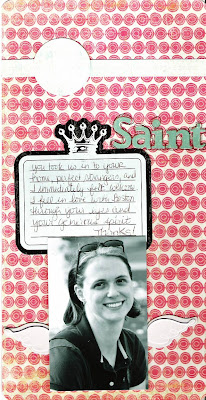 Saint
you took us in to your
home, perfect strangers, and
I immediately felt welcome
I fell in love with Boston
through your eyes and
your generous spirit
Thanks!